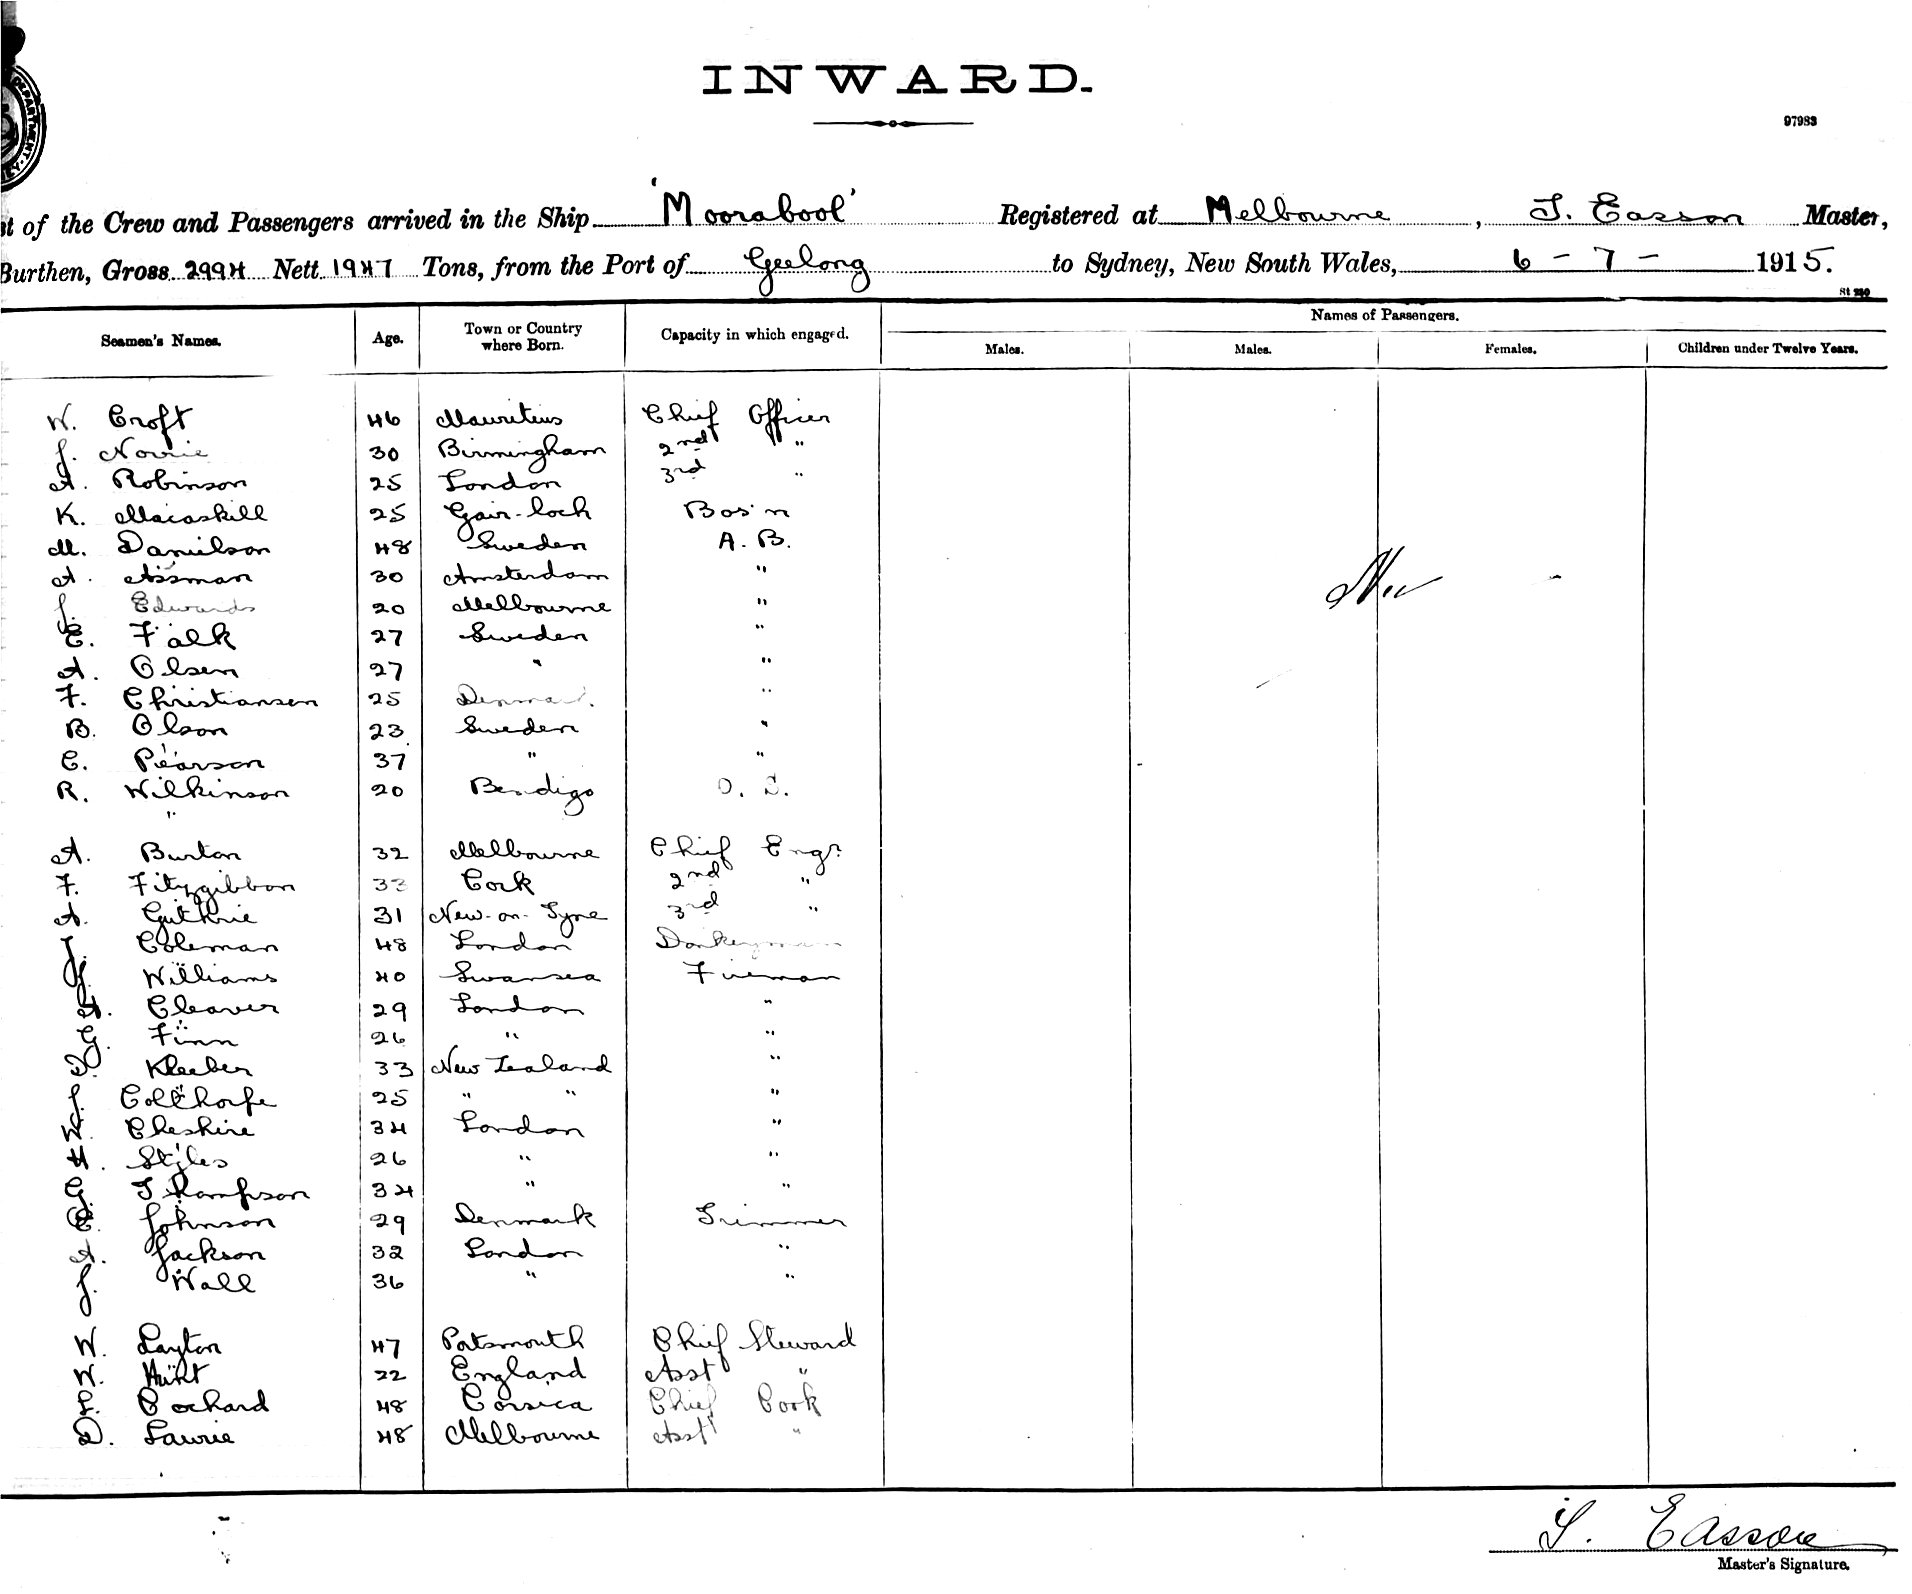 INWARD.
97983
st of the Crew and Passengers arrived in the Ship 'Moorabool' Registered at Melbourne, J. Easson Master,
Burthen, Gross 2994 Nett 1947 Tons, from the Port of Geelong to Sydney, New South Wales, 6 - 7 - 1915.
Seamen's Names. Age. Town or Country where Born. Capacity in which engaged. Names of Passengers.
Males. Males. Females. Children under Twelve Years.
W. Croft 46 Mauritius Chief Officer
J. Norrie 30 Birmingham 2nd "
A. Robinson 25 London 3rd "
K. Macaskill 25 Gair-loch Bos'n
M. Danielson 48 Sweden A.B.
A. Assman 30 Amsterdam "
J. Edwards 20 Melbourne "
E. Falk 27 Sweden "
A. Olsen 27 " "
F. Christiansen 25 Denmark "
B. Olson 23 Sweden "
C. Pearson 37 " "
R. Wilkinson 20 Bendigo O. S.
A. Burton 32 Melbourne Chief Engr
F. Fitzgibbon 33 Cork 2nd "
A. Guthrie 31 New-on-Tyne 3rd "
J. Coleman 48 London Donkeyman
Williams 40 Swansea Fireman
Cleaver 29 London "
G. Finn 26 " "
D. Kleeber 33 New Zealand "
Colthorfe 25 " " "
Cheshire 34 London "
H. Stiles 26 " "
G. Thompson 34 " "
Johnson 29 Denmark Trimmer
A. Jackson 32 London "
J. Wall 36 " "
W. Layton 47 Portsmouth Chief Steward
W. Hunt 22 England Asst "
L. Cochard 48 Corsica Chief Cook
D. Lawrie 48 Melbourne Asst "
J. Easson
Master's Signature.